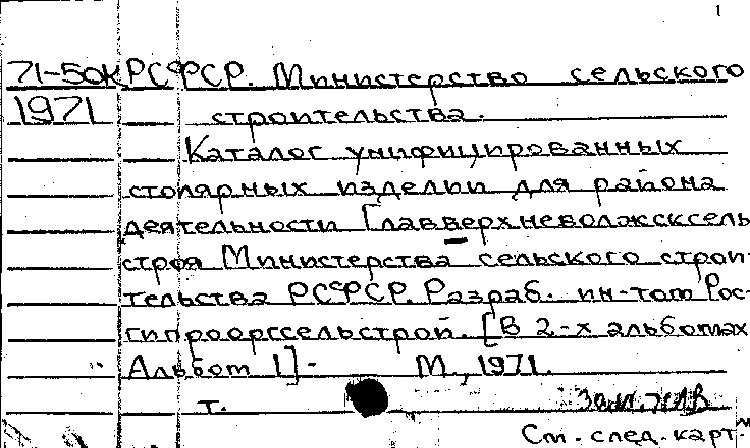 1
71-50К РСФСР. Министерство сельского
1971 строительства.
Каталог унифицированных
столярных изделий для района
деятельности Главверхневолжсксель-
строя Министерства сельского строи-
тельства РСФСР. Разраб. ин-том Рос-
гипрооргсельстрой. [В 2-х альбомах
Альбом 1]- М., 1971.
т.
См. след. карт.